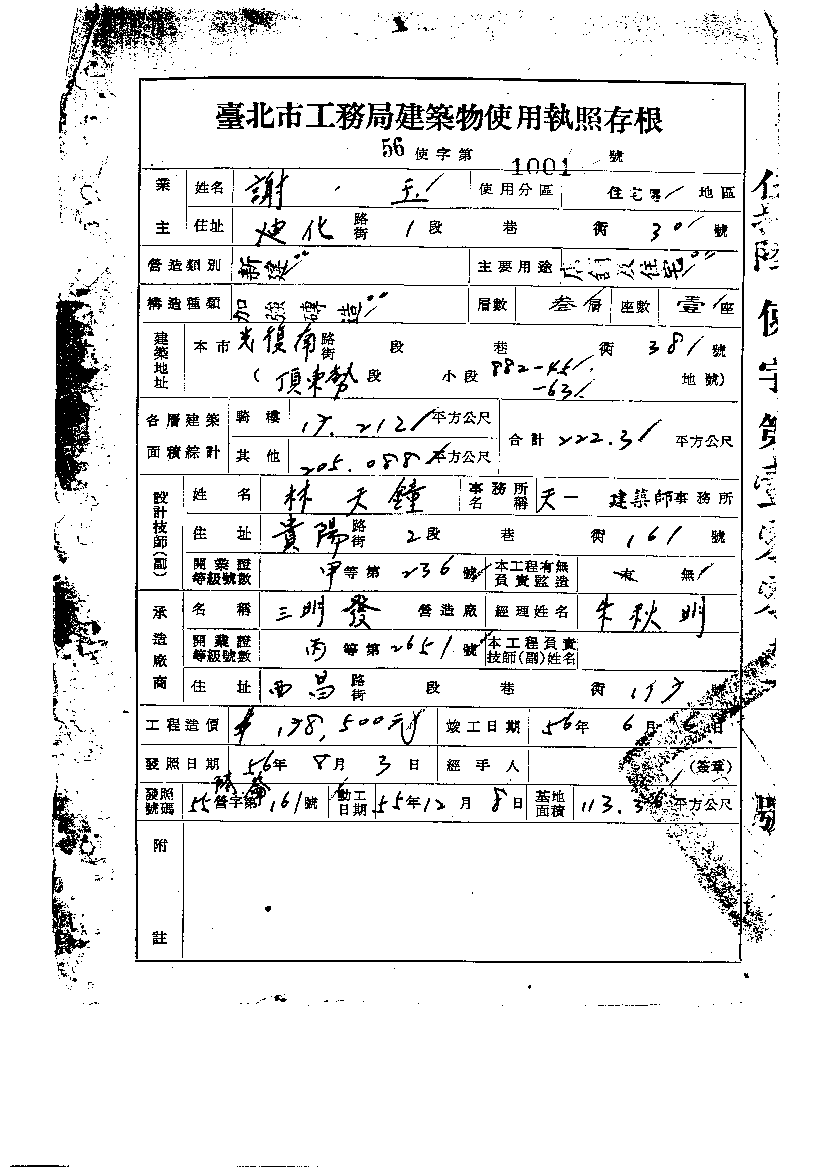 臺北市工務局建築物使用執照存根
56 使字第 1001 號
業主 姓名 謝 玉 使用分區 住宅區 地區
住址 迪化 路街 1 段 巷 衖 30 號
營造類別 新建 主要用途 店舖及住宅
構造種類 加強磚造 層數 叁層 座數 壹座
建築地址 本市 光復南 路街 段 巷 衖 38 號
(頂東勢 段 小段 882-45 -63 地號)
各層建築面積綜計 騎樓 17.212 平方公尺 合計 222.3 平方公尺
其他 205.088 平方公尺
設計技師(副) 姓名 林天鐘 事務所名稱 天一 建築師事務所
住址 貴陽 路街 2段 巷 衖 16 號
開業證等級號數 甲等第 236 號 本工程有無負責監造 有 無
承造廠商 名稱 三明發 營造廠 經理姓名 朱秋明
開業證等級號數 丙等第 2651 號 本工程負責技師(副)姓名
住址 西昌 路街 段 巷 衖 號
工程造價 138,500元 竣工日期 56年 6月 日
發照日期 56年 8月 3日 經手人 (簽章)
發照號碼 55營字第 161號 動工日期 55年12月 8日 基地面積 113.36 平方公尺
附註
使字第壹零零